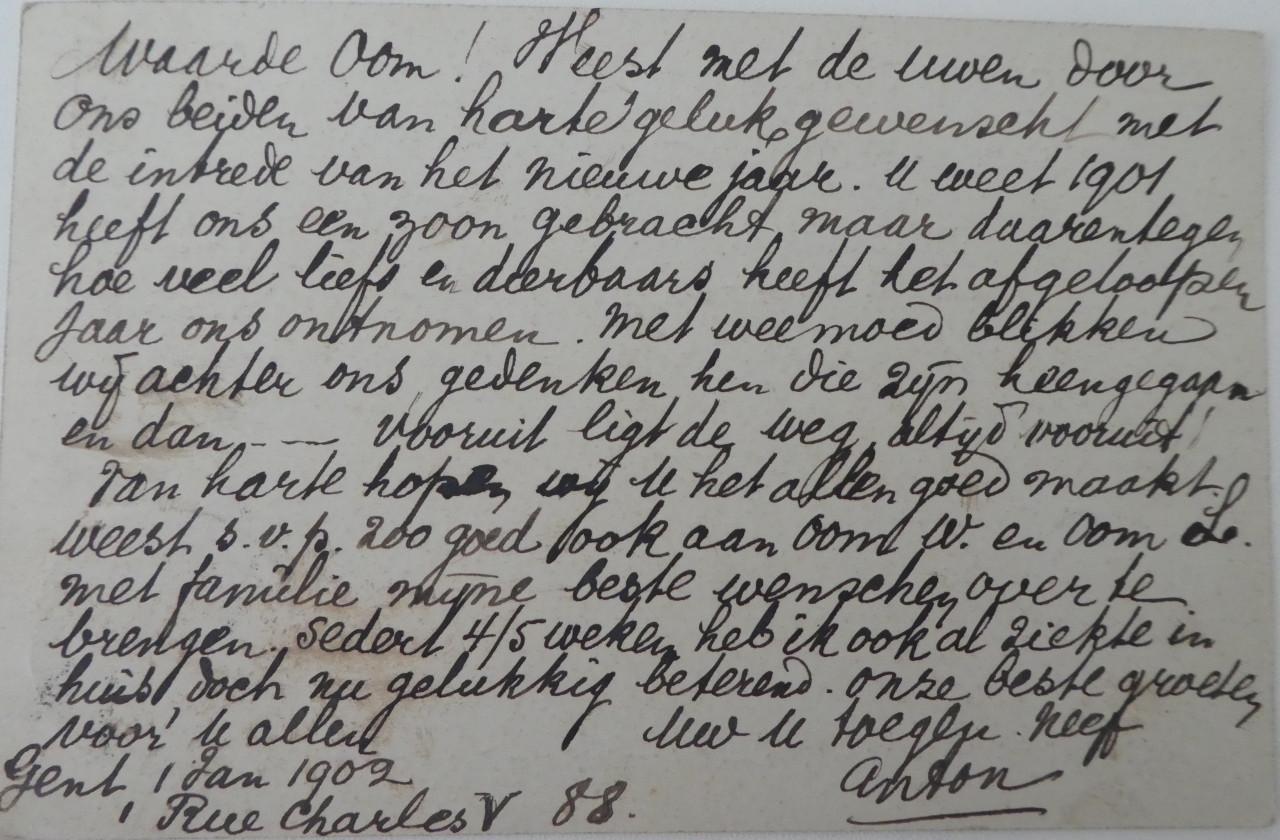 Waarde Oom! Weest met de uwen door
ons beiden van harte geluk gewenscht met
de intrede van het nieuwe jaar. U weet 1901
heeft ons een zoon gebracht, maar daarentegen
hoe veel liefs en dierbaars heeft het afgeloopen
Jaar ons ontnomen. Met weemoed blikken
wij achter ons, gedenken hen die zijn heengegaan
en dan - — vooruit ligt de weg, altijd vooruit!
Van harte hopen wij U het allen goed maakt.
weest s.v.p. zoo goed ook aan Oom W. en Oom L.
met familie mijne beste wenschen over te
brengen. Sedert 4/5 weken heb ik ook al ziekte in
huis, doch nu gelukkig beterend. onze beste groeten
voor U allen Uw U toegen. Neef
Gent, 1 Jan 1902 Anton
Rue Charles V 88.